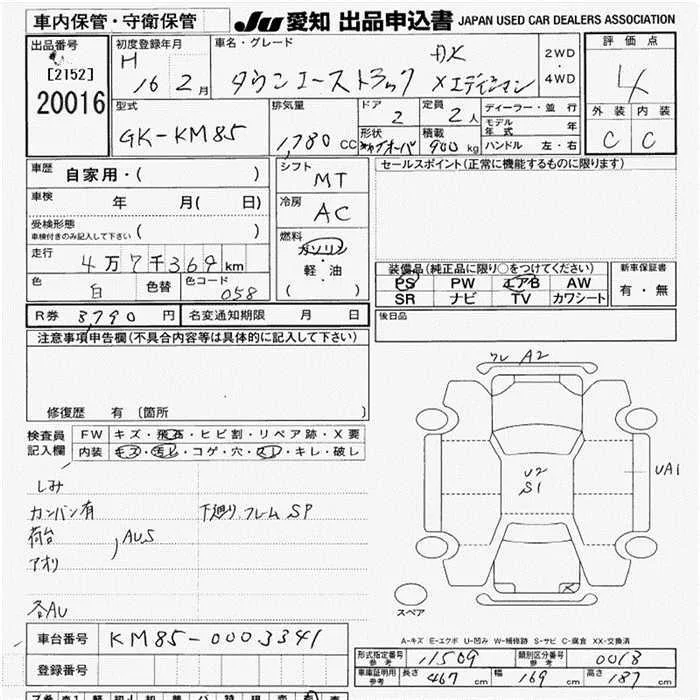 車内保管・守衛保管
JU 愛知 出品申込書 JAPAN USED CAR DEALERS ASSOCIATION
出品番号
[2152]
20016
初度登録年月
H 16 2月
車名・グレード
DX
タウンエーストラック
2WD
・
4WD
評価点
4
外装 内装
C C
型式
GK-KM85
排気量
1,780 CC
ドア
2
定員
2人
形状
積載
900 kg
ディーラー・並行
モデル年式 年
ハンドル 左・右
車歴 自家用・( )
車検 年 月( 日)
受検形態
車検付きのみ記入して下さい ( )
走行 4万7千369 km
色 白 色替 色コード 058
シフト
MT
冷房
AC
燃料
ガソリン
・
軽・油
( )
セールスポイント(正常に機能するものに限ります)
装備品(純正品に限り○をつけてください)
PS PW エアB AW
SR ナビ TV カワシート
新車保証書
有・無
R券 8,790 円 名変通知期限 月 日
後日品
注意事項申告欄(不具合内容等は具体的に記入して下さい)
修復歴 有 〔箇所 〕
検査員
記入欄
FW キズ・飛石・ヒビ割・リペア跡・X要
内装 キズ・汚レ・コゲ・穴・スレ・キレ・破レ
しみ
カンバン有 下廻り、フレームSP
荷台
AUS
アオリ
各AU
ワレ A2
U2
S1
UA1
スペア
A-キズ E-エクボ U-凹み W-補修跡 S-サビ C-腐食 XX-交換済
車台番号 KM85-0003341
登録番号
形式指定番号 参考 11509 類別区分番号 参考 0018
車庫証明用 参考 長さ 467 cm 幅 169 cm 高さ 187 cm